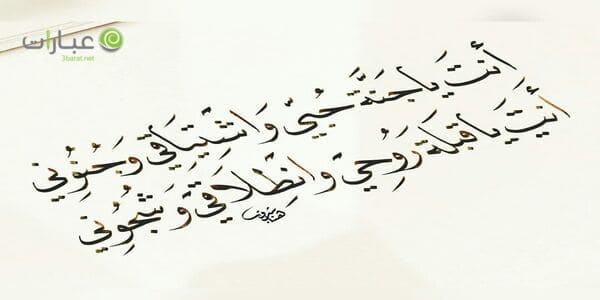 عبارات
3barat.net
أنتَ يَا جَنَّةَ حُبِّي وَاشْتِيَاقِي وَجُنُونِي
أَنْتَ يَا قِبْلَةَ رُوحِي وَانْطِلَاقِي وَشُجُونِي